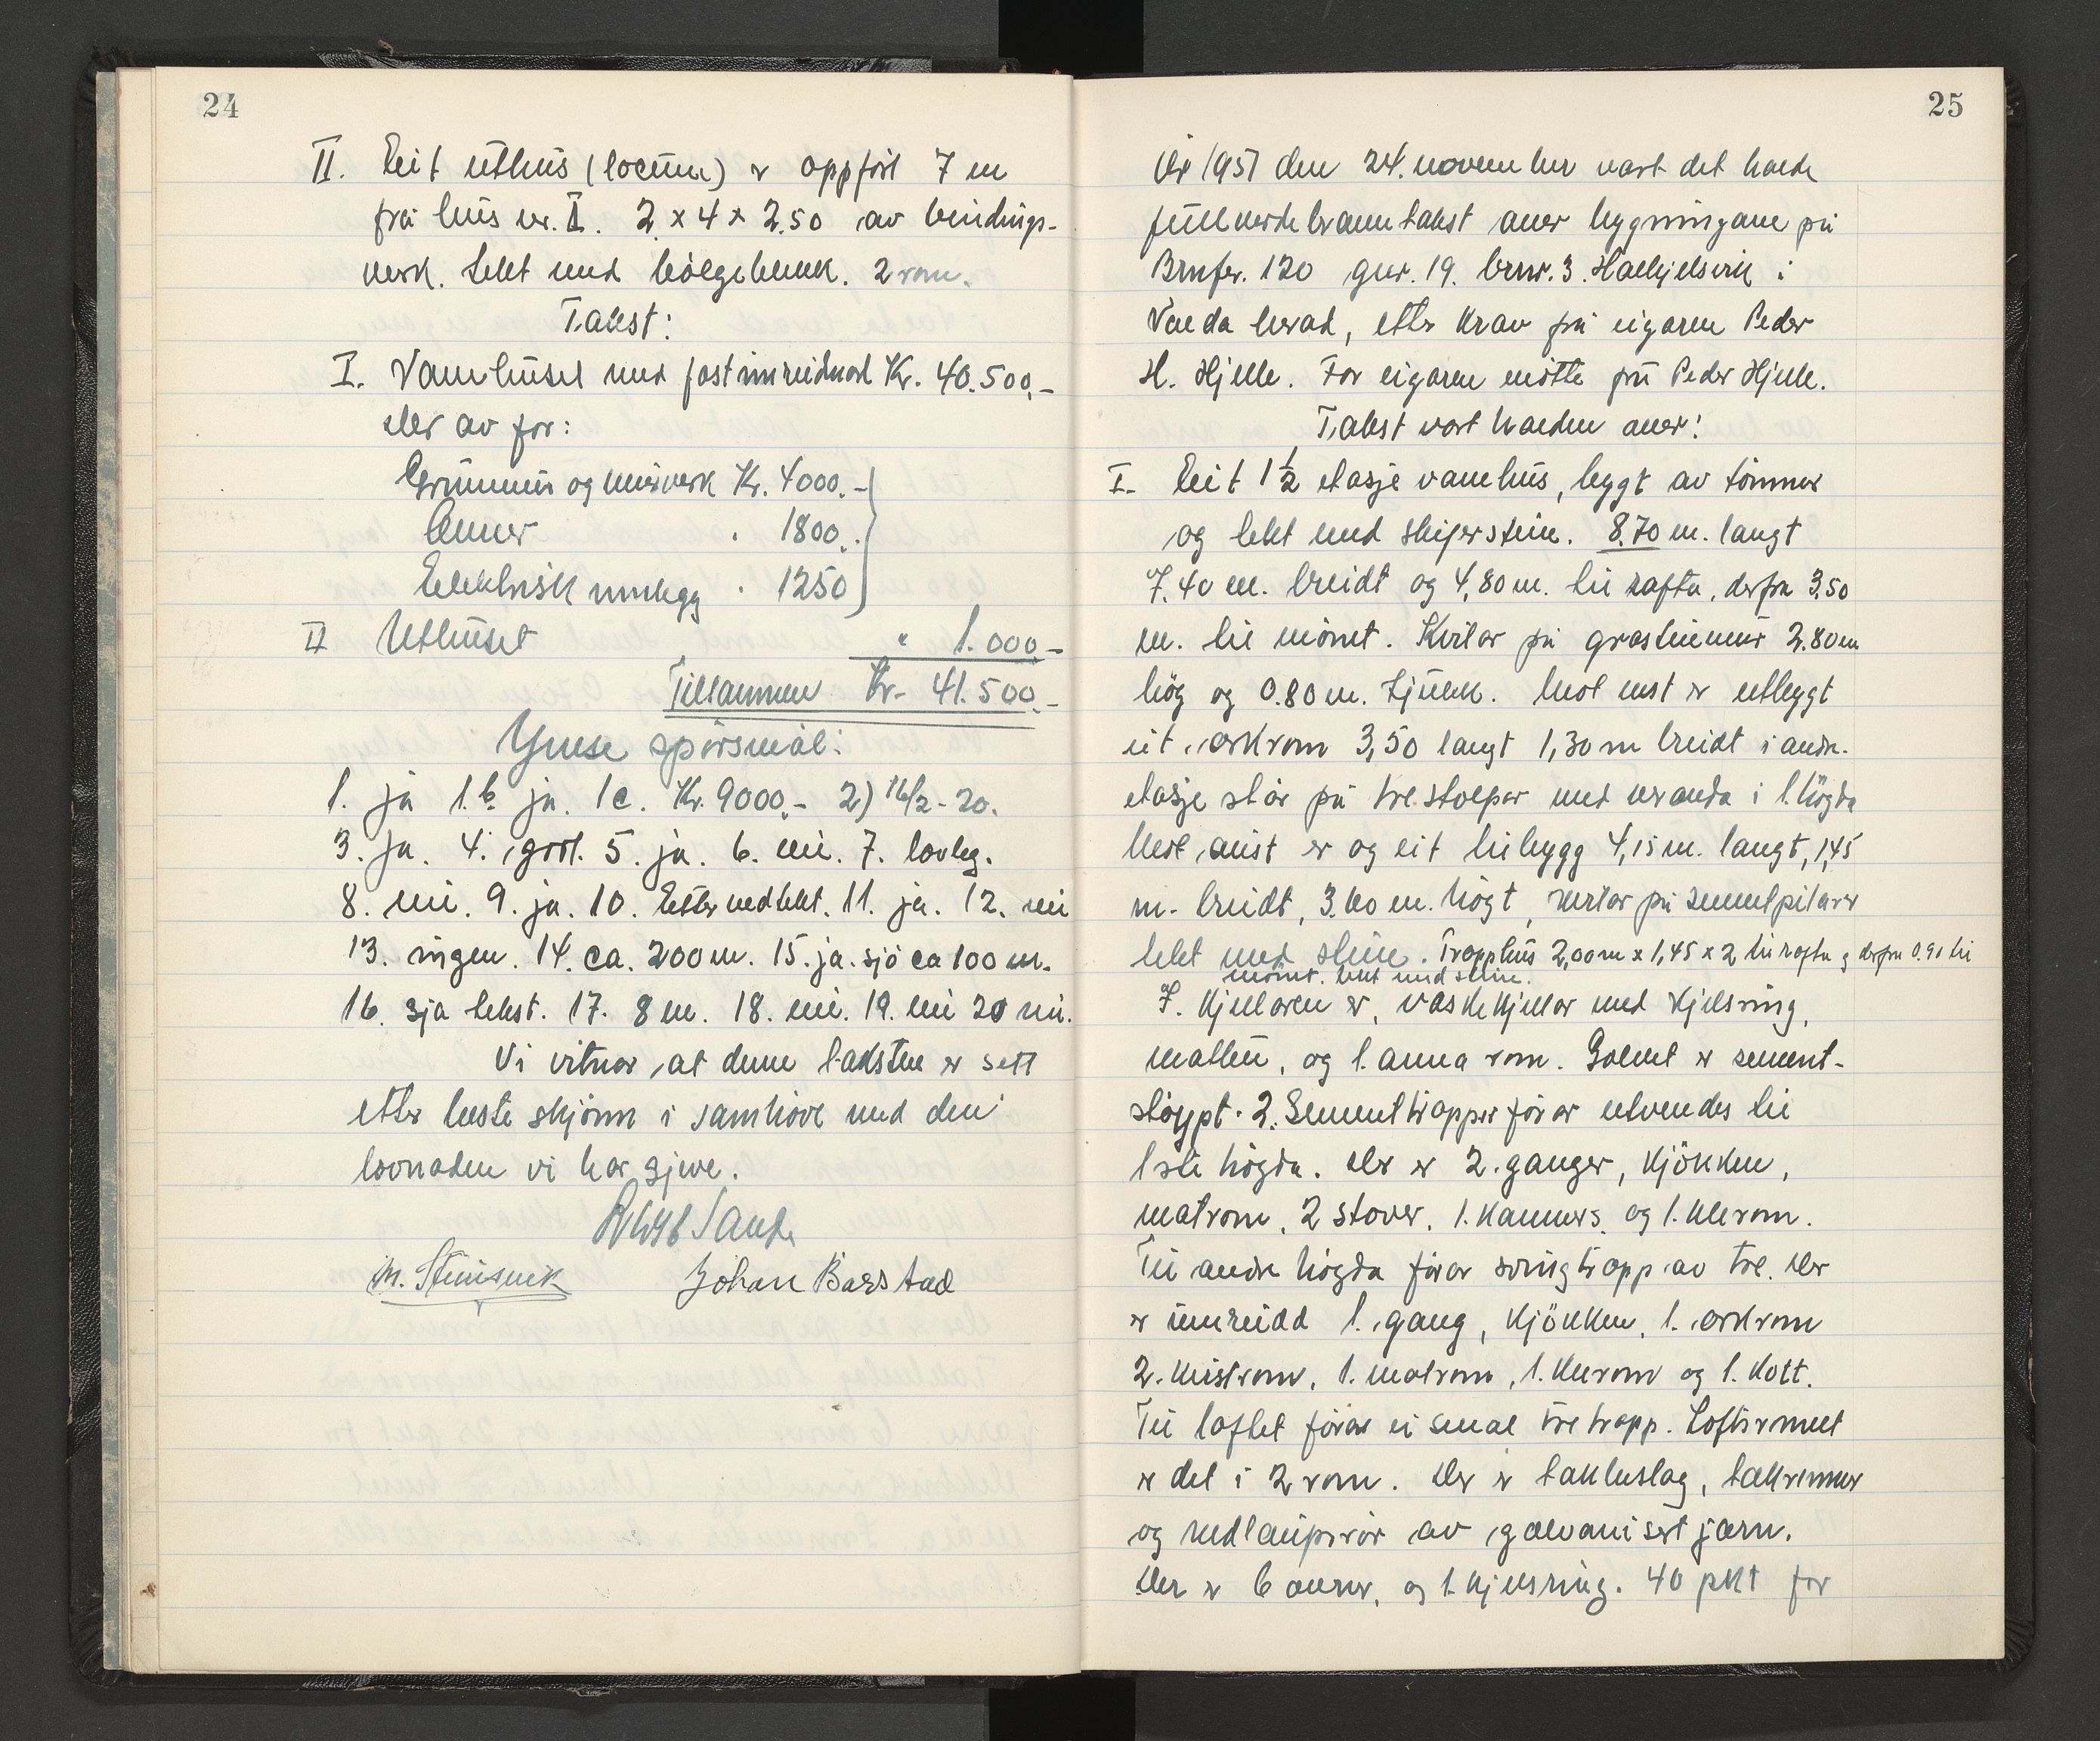 24
II. Eit uthus (locum) er oppført 7 m
frå hus nr. I. 2 x 4 x 2.50 av bindings-
verk. Tekt med bölgeblekk. 2 rom.
Takst:
I. Vånehuset med fast innreidnad Kr. 40.500,-
Der av for:
Grunnmur og murverk Kr. 4000.-
Omner " 1800.-
Elektrisk innlegg " 1250
II Uthuset " 1.000,-
Tilsammen Kr. 41.500,-
Ymse spörsmål:
1. ja 1.b ja. 1c. Kr. 9000,- 2) 16/2-20.
3. Ja. 4. god. 5. ja. 6. nei. 7. lovleg.
8. nei. 9. ja. 10. Etter vedtekt. 11. ja. 12. nei
13. ingen. 14. ca. 200 m. 15. ja. sjö ca 100 m.
16. sjå tekst. 17. 8 m. 18. nei. 19. nei 20 nei.
Vi vitnar, at denne taksten er sett
etter beste skjönn i samhöve med den
lovnaden vi har gjeve.
Sande
M. Steinsvik Johan Barstad
25
År 1951 den 24. november vart det halde
fullverde branntakst over bygningane på
Brnfr. 120 gnr. 19. brnr. 3. Halkjelsvik i
Volda herad, etter krav frå eigaren Peder
H. Hjelle. For eigaren møtte frå Peder Hjelle.
Takst vart halden over:
I. Eit 1 1/2 etasje vånehus, bygt av tömmer
og tekt med skiferstein. 8.70 m. langt
7.40 m. breidt og 4,80 m. til rafta, derfra 3,50
m. til mönet. Kvilar på gråsteinmur 2.80 m
hög og 0.80 m. tjukk. Mot vest er utbygt
eit arkrom 3,50 langt 1,30 m breidt i andre
etasje står på tre stolpar med veranda i 1. högda
Mot aust er og eit tilbygg 4,15 m. langt, 1,45
m. breidt, 3.60 m. högt, kvilar på sementpilarer
tekt med stein. Tropphus 2,00 m x 1,45 x 2 til rafta og derfra 0.90 til
mönet. tekt med stein.
I. Kjellaren er, vaskekjellar med kjelsring,
matbu, og 1. anna rom. Golvet er sement-
stöypt. 2. Sementtrapper förar utvendes til
1ste högda. Der er 2. ganger, kjökken,
matrom, 2 stover, 1. kammers og 1. klerom.
Til andre högda förar svingtrapp av tre. Der
er innreidd 1. gang, kjökken, 1. arkrom
2. kvistrom, 1. matrom, 1. klerom og 1. kott.
Til loftet förar ei smal tretrapp. Loftsromet
er det i 2 rom. Der er takbeslag, takrenner
og nedlaupsrör av galvanisert jarn.
Der er 6 omner, og 1. kjelsring. 40 pkt for